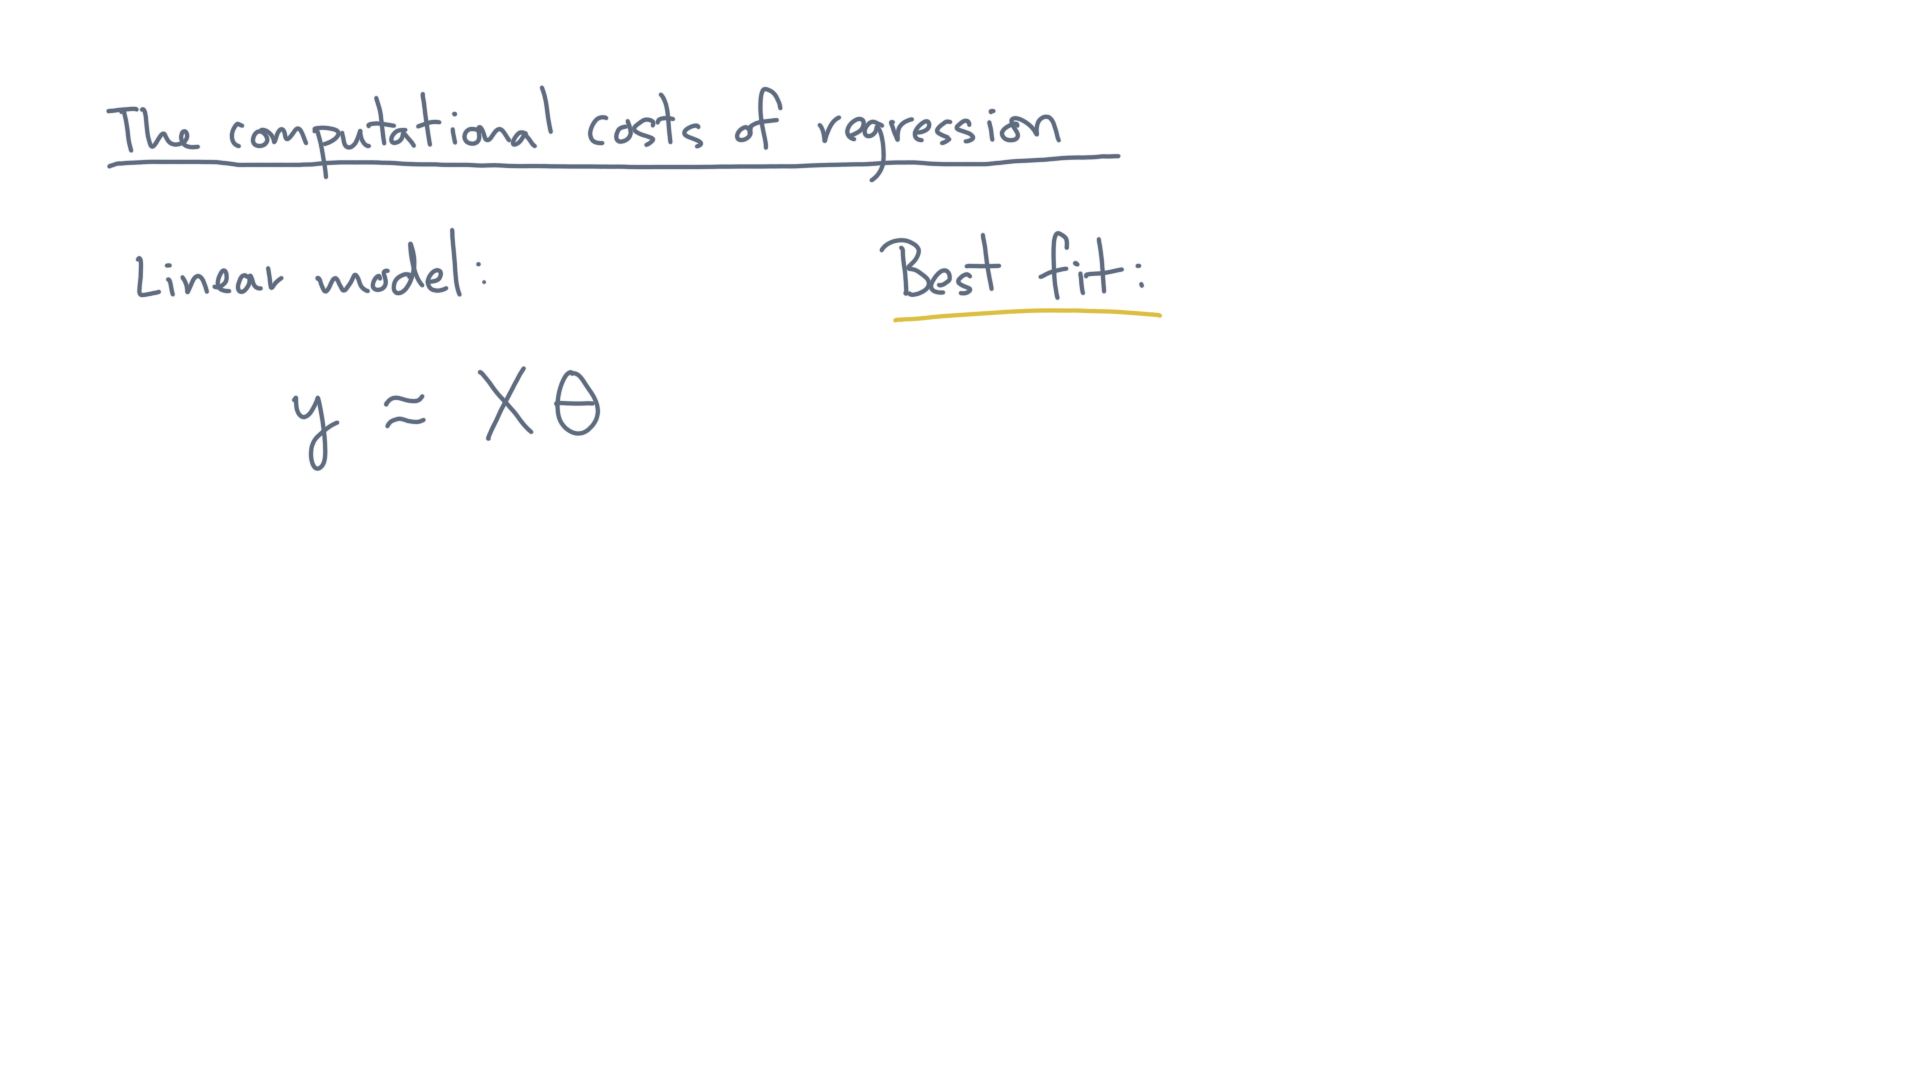 The computational costs of regression
Linear model:
Best fit:
y ≈ Xθ